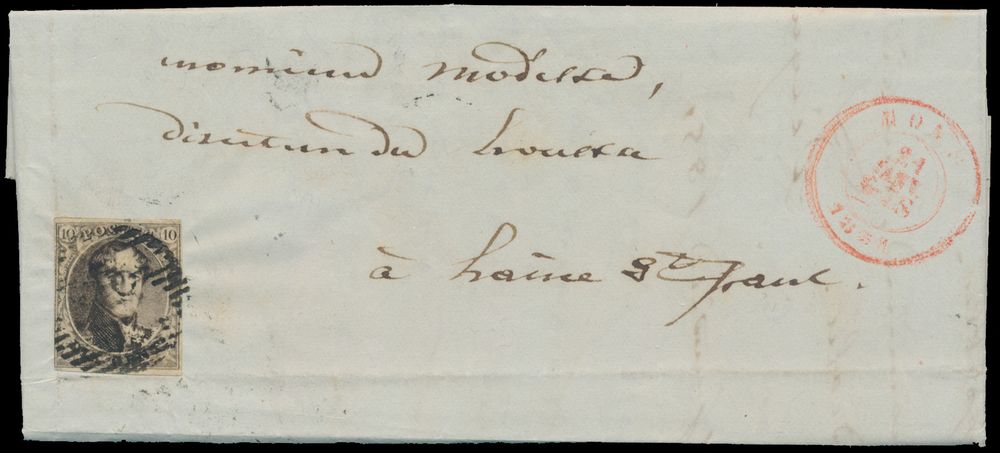 monsieur modeste,
directeur du houssu
à haine St paul.
10 POSTES 10
MONS
1851